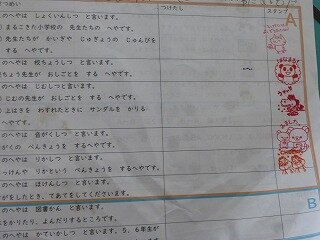 つめい つけたし スタンプ
A
のへやは しょくいんしつ と言います。
まるごきた小学校の 先生たちの へやです。
先生たちが かいぎや じゅぎょうの じゅんびを
する へやです。
のへやは 校ちょうしつ と言います。
ちょう先生が おしごとを する へやです。
のへやは じむしつと言います。
じむの先生が おしごとを する へやです。
上ばきを わすれたときに サンダルを かりる
へやです。
のへやは 音がくしつ と言います。
がくの べんきょうを するへやです。
のへやは りかしつ と言います。
っけんや りかという べんきょうを するへやです。
のへやは ほけんしつ と言います。
がをしたとき、てあてをしてくださいます。
B
のへやは 図書かん と言います。
本をかりたり、よんだりするところです。
のへやは かていかしつ と言います。5、6年生が